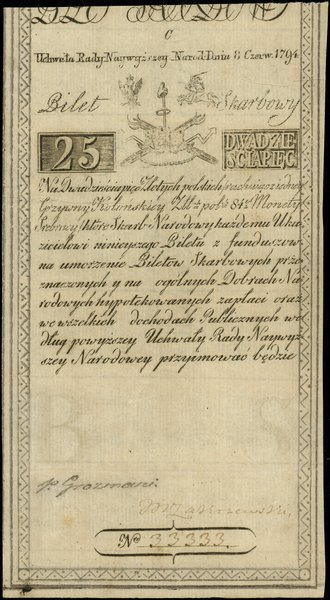 C
Uchwała Rady Naywyższey Narod: Dnia 8 Czerw. 1794
Bilet Skarbowy
25 DWADZIE
ŚCIAPIĘĆ
Na Dwadzieściapięć Złotych polskich rachuiąc w iedney
Grzywny Kolonskiey Złł: pols: 84½ Monety
Srebrney, które Skarb Narodowy każdemu Oka-
zicielowi ninieyszego Biletu z funduszow
na umorzenie Biletów Skarbowych prze-
znaczonych y na ogolnych Dobrach Na-
rodowych hypotekowanych zapłaci oraz
we wszelkich dochodach Publicznych we-
dług powyższey Uchwały Rady Naywyż-
szey Narodowey przyimować będzie
B S
P. Grozmani.
M Zakrzewski,
No 33333.